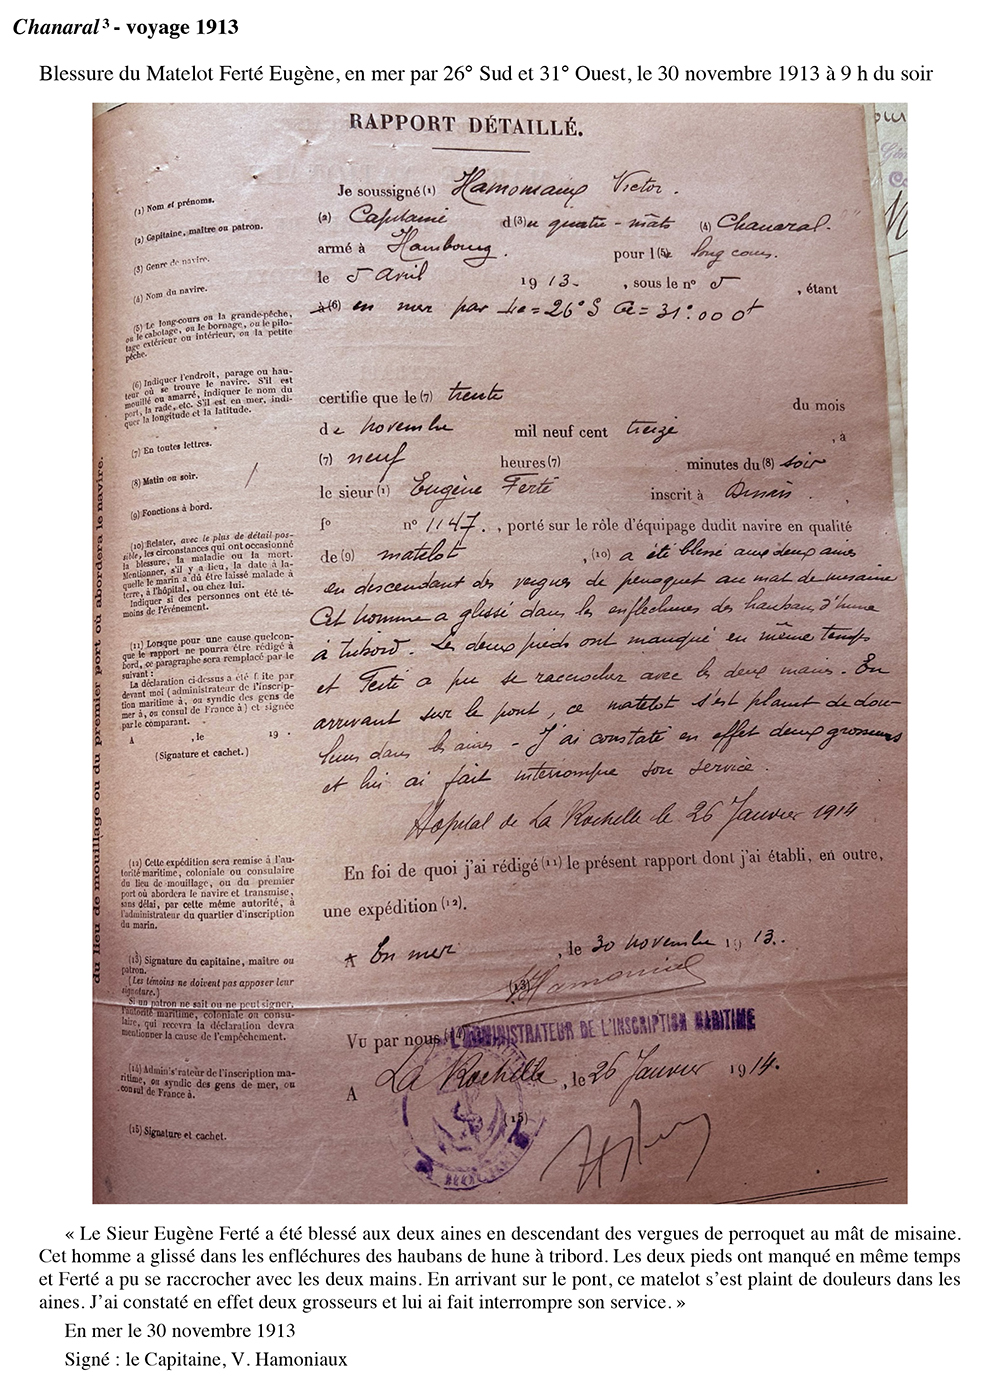 Chanaral ³ - voyage 1913
Blessure du Matelot Ferté Eugène, en mer par 26° Sud et 31° Ouest, le 30 novembre 1913 à 9 h du soir
RAPPORT DÉTAILLÉ.
Je soussigné (1) Hamoniaux Victor.
(2) Capitaine d (3) u quatre-mâts (4) Chanaral.
armé à Hambourg. pour l (5) long cours.
le 5 Avril 1913. , sous le n° 5 , étant
à (6) en mer par La = 26° S G = 31°.00 Ot
certifie que le (7) trente du mois
de novembre mil neuf cent treize , à
(7) neuf heures (7) minutes du (8) soir
le sieur (1) Eugène Ferté inscrit à Dinan.
f° n° 1147. , porté sur le rôle d'équipage dudit navire en qualité
de (9) matelot , (10) a été blessé aux deux aines
en descendant des vergues de perroquet au mat de misaine
Cet homme a glissé dans les enfléchures des haubans d'hune
à tribord. Les deux pieds ont manqué en même temps
et Ferté a pu se raccrocher avec les deux mains. En
arrivant sur le pont, ce matelot s'est plaint de dou-
leurs dans les aines - J'ai constaté en effet deux grosseurs
et lui ai fait interrompre son service.
Hopital de La Rochelle le 26 Janvier 1914
En foi de quoi j'ai rédigé (11) le présent rapport dont j'ai établi, en outre,
une expédition (12).
A En mer , le 30 novembre 1913.
(13) Hamoniaux
Vu par nous (14) L'ADMINISTRATEUR DE L'INSCRIPTION MARITIME
A La Rochelle , le 26 Janvier 1914.
(15)
(1) Nom et prénoms.
(2) Capitaine, maître ou patron.
(3) Genre de navire.
(4) Nom du navire.
(5) Le long-cours ou la grande-pêche,
ou le cabotage, ou le bornage, ou le pilo-
tage extérieur ou intérieur, ou la petite
pêche.
(6) Indiquer l'endroit, parage ou hau-
teur où se trouve le navire. S'il est
mouillé ou amarré, indiquer le nom du
port, la rade, etc. S'il est en mer, indi-
quer la longitude et la latitude.
(7) En toutes lettres.
(8) Matin ou soir.
(9) Fonctions à bord.
(10) Relater, avec le plus de détail pos-
sible, les circonstances qui ont occasionné
la blessure, la maladie ou la mort.
Mentionner, s'il y a lieu, la date à la-
quelle le marin a dû être laissé malade à
terre, à l'hôpital, ou chez lui.
Indiquer si des personnes ont été té-
moins de l'événement.
(11) Lorsque pour une cause quelcon-
que le rapport ne pourra être rédigé à
bord, ce paragraphe sera remplacé par le
suivant :
La déclaration ci-dessus a été f ite par
devant moi (administrateur de l'inscrip-
tion maritime à, ou syndic des gens de
mer à, ou consul de France à) et signée
par le comparant.
A , le 19 .
(Signature et cachet.)
(12) Cette expédition sera remise à l'au-
torité maritime, coloniale ou consulaire
du lieu de mouillage, ou du premier
port où abordera le navire et transmise,
sans délai, par cette même autorité, à
l'administrateur du quartier d'inscription
du marin.
(13) Signature du capitaine, maître ou
patron.
(Les témoins ne doivent pas apposer leur
signature.)
Si un patron ne sait ou ne peut signer,
l'autorité maritime, coloniale ou consu-
laire, qui recevra la déclaration devra
mentionner la cause de l'empêchement.
(14) Adminis'rateur de l'inscription ma-
ritime, ou syndic des gens de mer, ou
consul de France à.
(15) Signature et cachet.
du lieu de mouillage ou du premier port où abordera le navire.
« Le Sieur Eugène Ferté a été blessé aux deux aines en descendant des vergues de perroquet au mât de misaine.
Cet homme a glissé dans les enfléchures des haubans de hune à tribord. Les deux pieds ont manqué en même temps
et Ferté a pu se raccrocher avec les deux mains. En arrivant sur le pont, ce matelot s'est plaint de douleurs dans les
aines. J'ai constaté en effet deux grosseurs et lui ai fait interrompre son service. »
En mer le 30 novembre 1913
Signé : le Capitaine, V. Hamoniaux